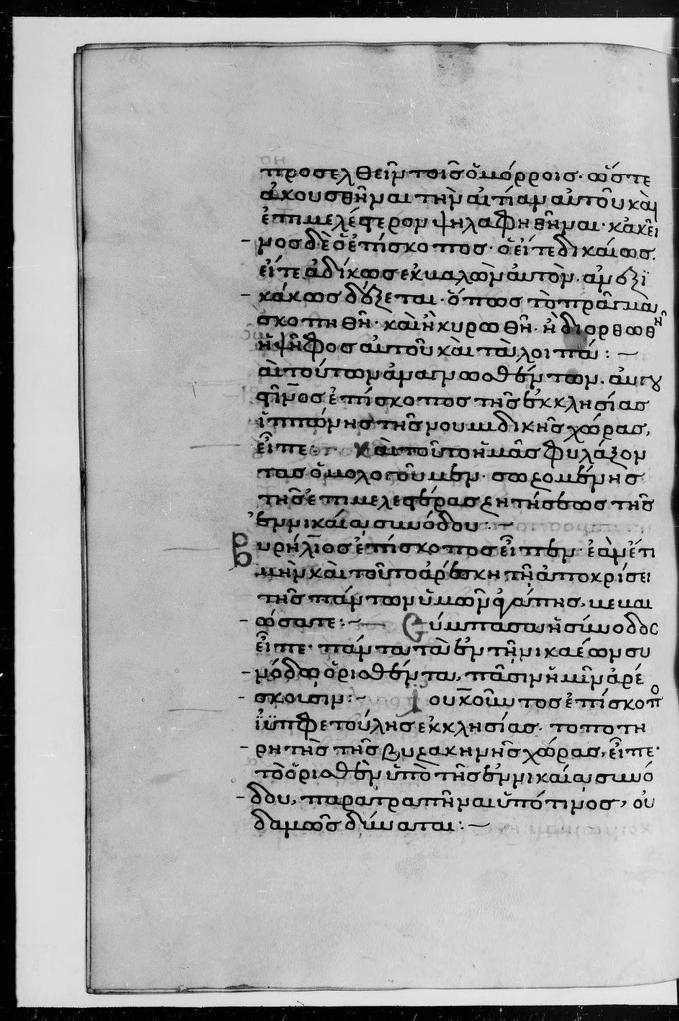 προσελθεῖν τοῖς ὁμόρροις· ὥστε
ἀκουσθῆναι τὴν αἰτίαν αὐτοῦ καὶ
ἐπιμελέστερον ψηλαφηθῆναι· κἀκεῖ
νος δὲ ὁ ἐπίσκοπος· ὁ εἴτε δικαίως
εἴτε ἀδίκως ἐκκαλῶν αὐτὸν, ἀνεξι
κάκως δέξεται· ὅπως τὸ πρᾶγμα
σκοπηθῆ· καὶ ἢ κυρωθῆ· ἢ διορθωθῆ
ἡ ψῆφος αὐτοῦ καὶ τὰ λοιπά :~
αἳ τούτων ἀναγνωσθέντων. αὐγυ
στῖνος ἐπίσκοπος τῆς ἐκκλησίας
ἱππώνης τῆς νουμιδικῆς χώρας,
εἶπε· καὶ τοῦτο ἡμᾶς φυλάξον
τας ὁμολογοῦμεν· σωζομένης
τῆς ἐπιμελεστέρας ζητήσεως τῆς
ἐν νικαία συνόδου :~
βυρήλιος ἐπίσκοπος εἶπεν· ἐὰν ἔτι
μὴν καὶ τοῦτο ἀρέσκη τῆ ἀποκρίσει
τῆς πάντων ὑμῶν ἀγάπης, βεβαι
ώσατε :~ Σύμπασα ἡ σύνοδος
εἶπε· πάντα τὰ ἐν τῆ νικαέων συ
νόδω ὁρισθέντα, πᾶσιν ἡμῖν ἀρέ
σκουσιν :~ Ἰουκοῦνδος ἐπίσκοπο
τῆς σουφετούλης ἐκκλησίας· τοποτη
ρητὴς τῆς βυζακηνῆς χώρας, εἶπε·
τὸ ὁρισθὲν ὑπὸ τῆς ἐν νικαία συνό
δου, παρατραπῆναι ὑπό τινος, οὐ
δαμῶς δύναται :~